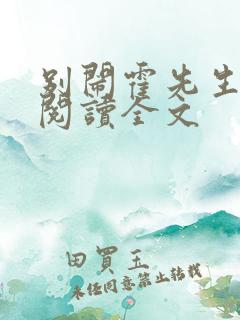 别鬧霍先生
閱讀全文
田買玉
未经同意禁止转载